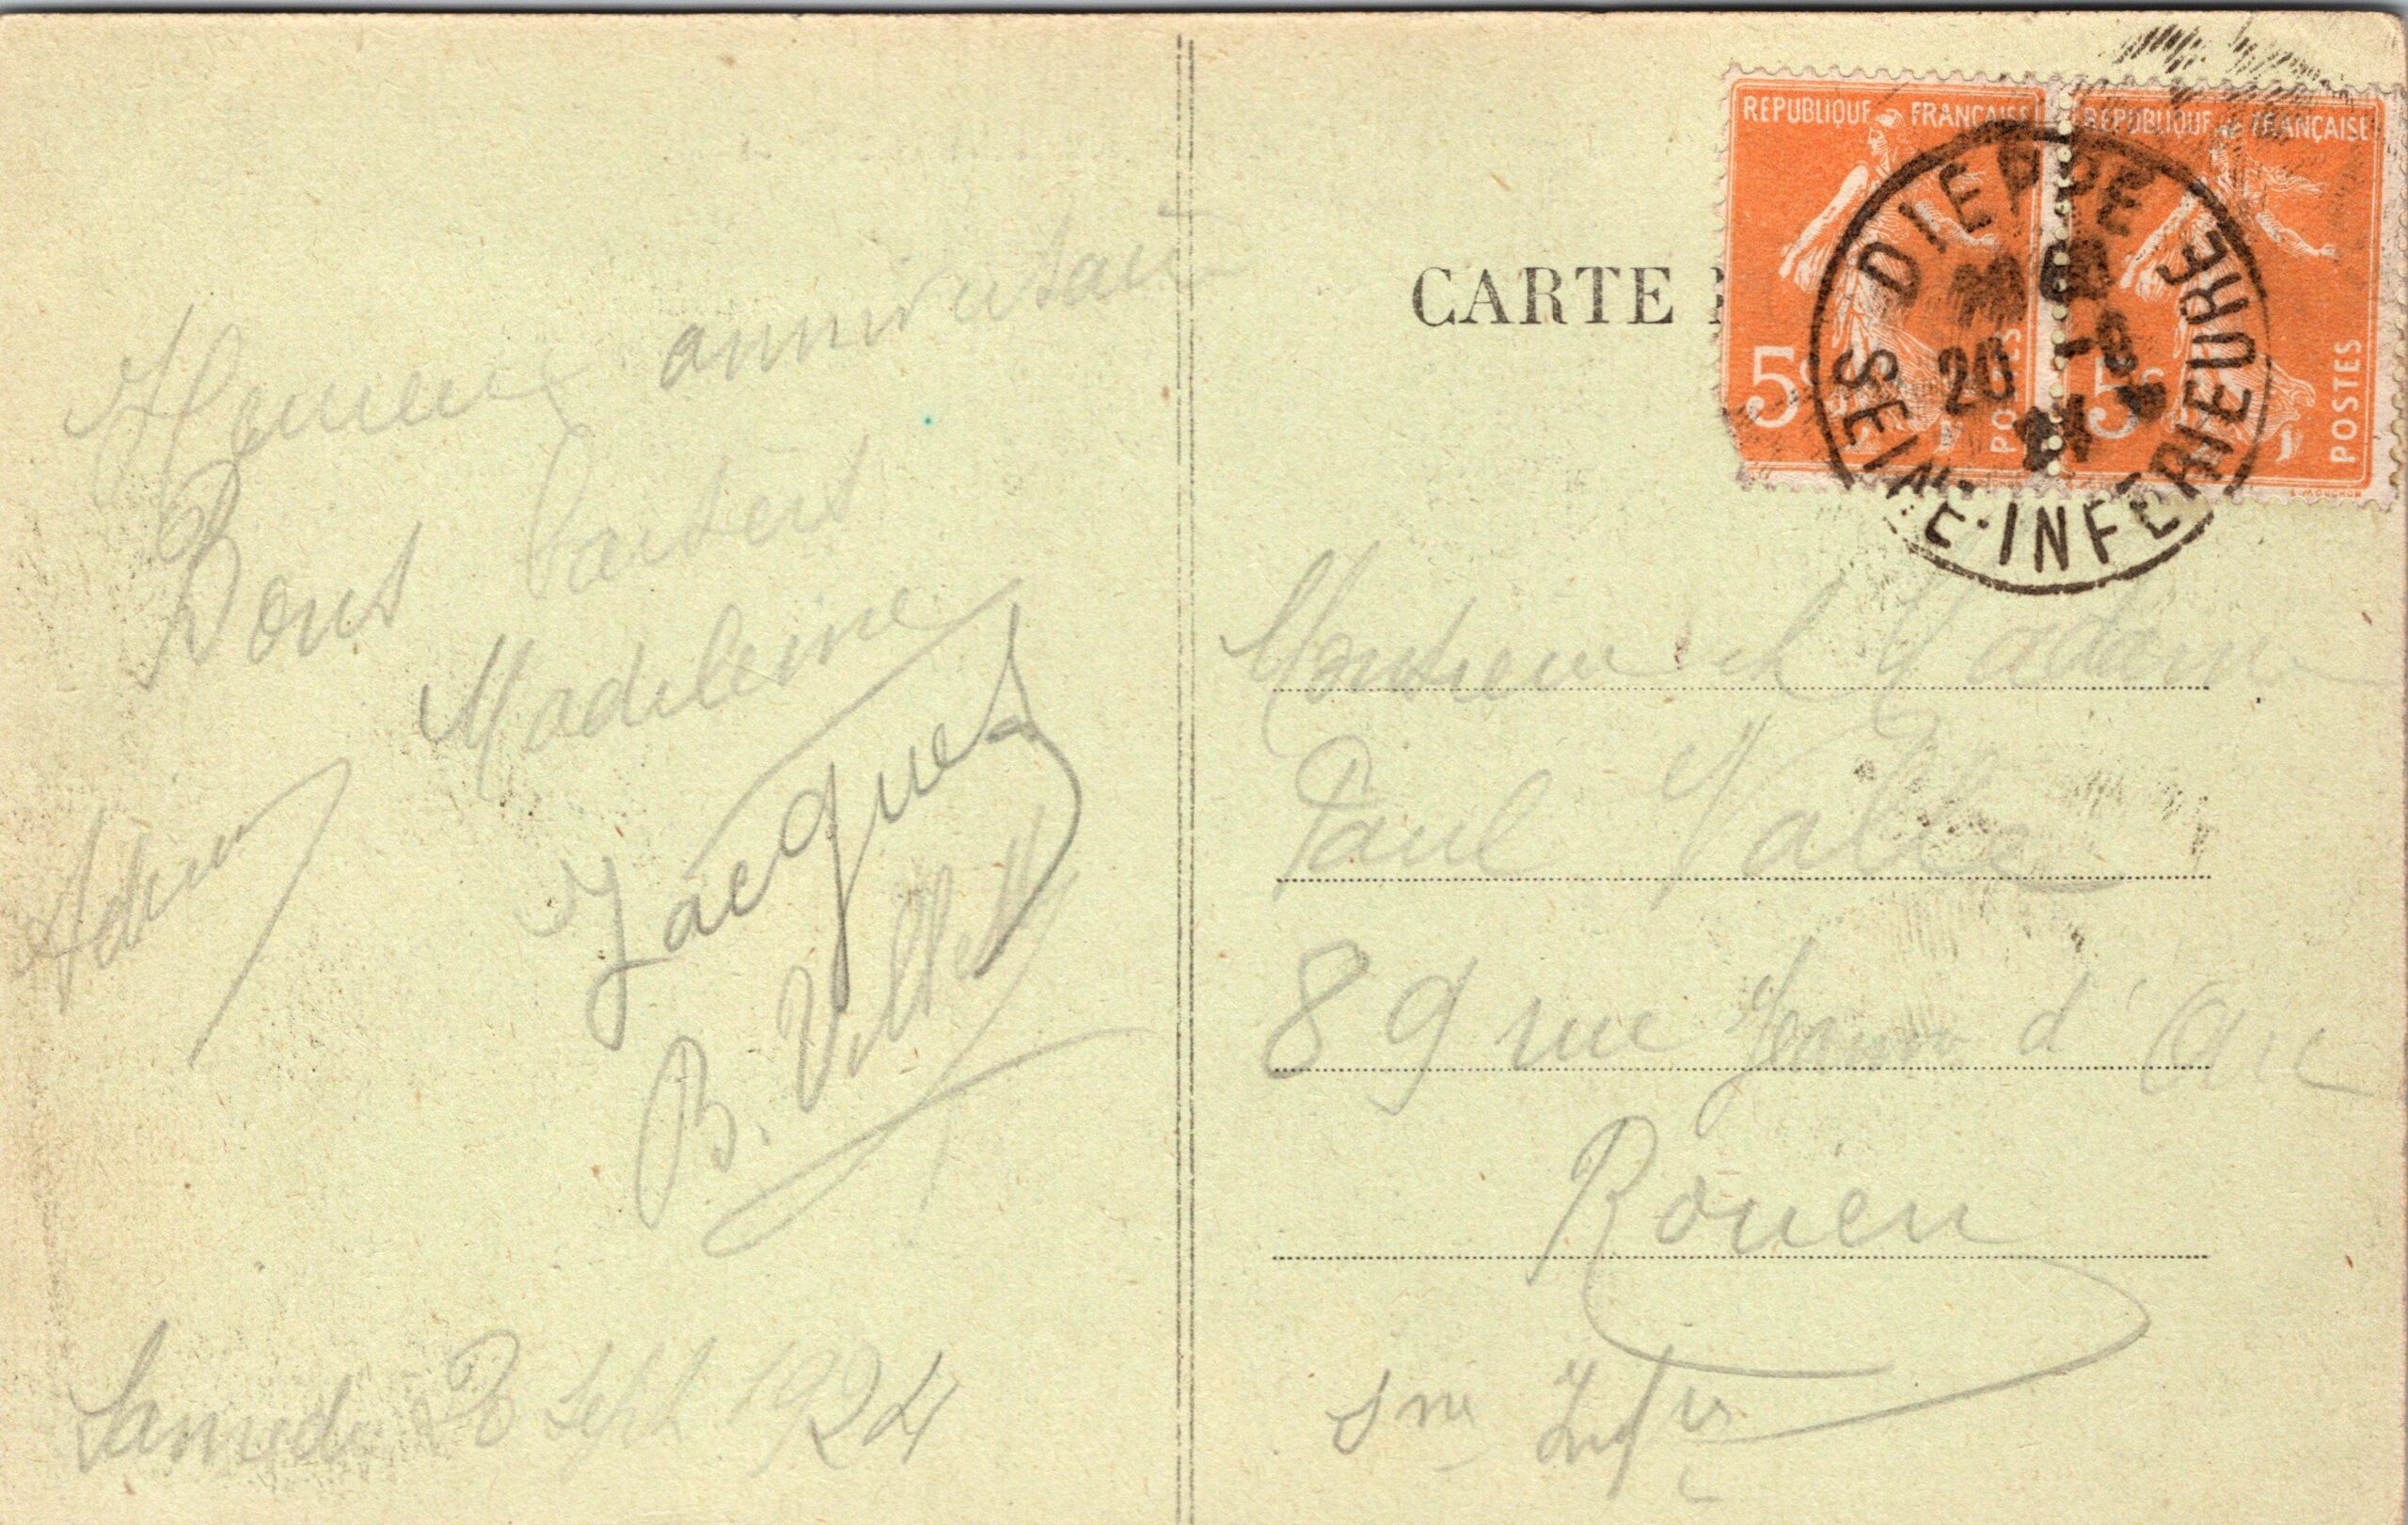 Heureux anniversaire
Bons baisers
Madeleine
Jacques
B. Villette
Samedi 20 Sept 1924
CARTE
REPUBLIQUE FRANÇAISE
5c
POSTES
REPUBLIQUE FRANÇAISE
5c
POSTES
E. MOUCHON
DIEPPE
20 -9
24
SEINE-INFERIEURE
Monsieur et Madame
Paul Valle
89 rue Jeanne d'Arc
Rouen
Sne Infre